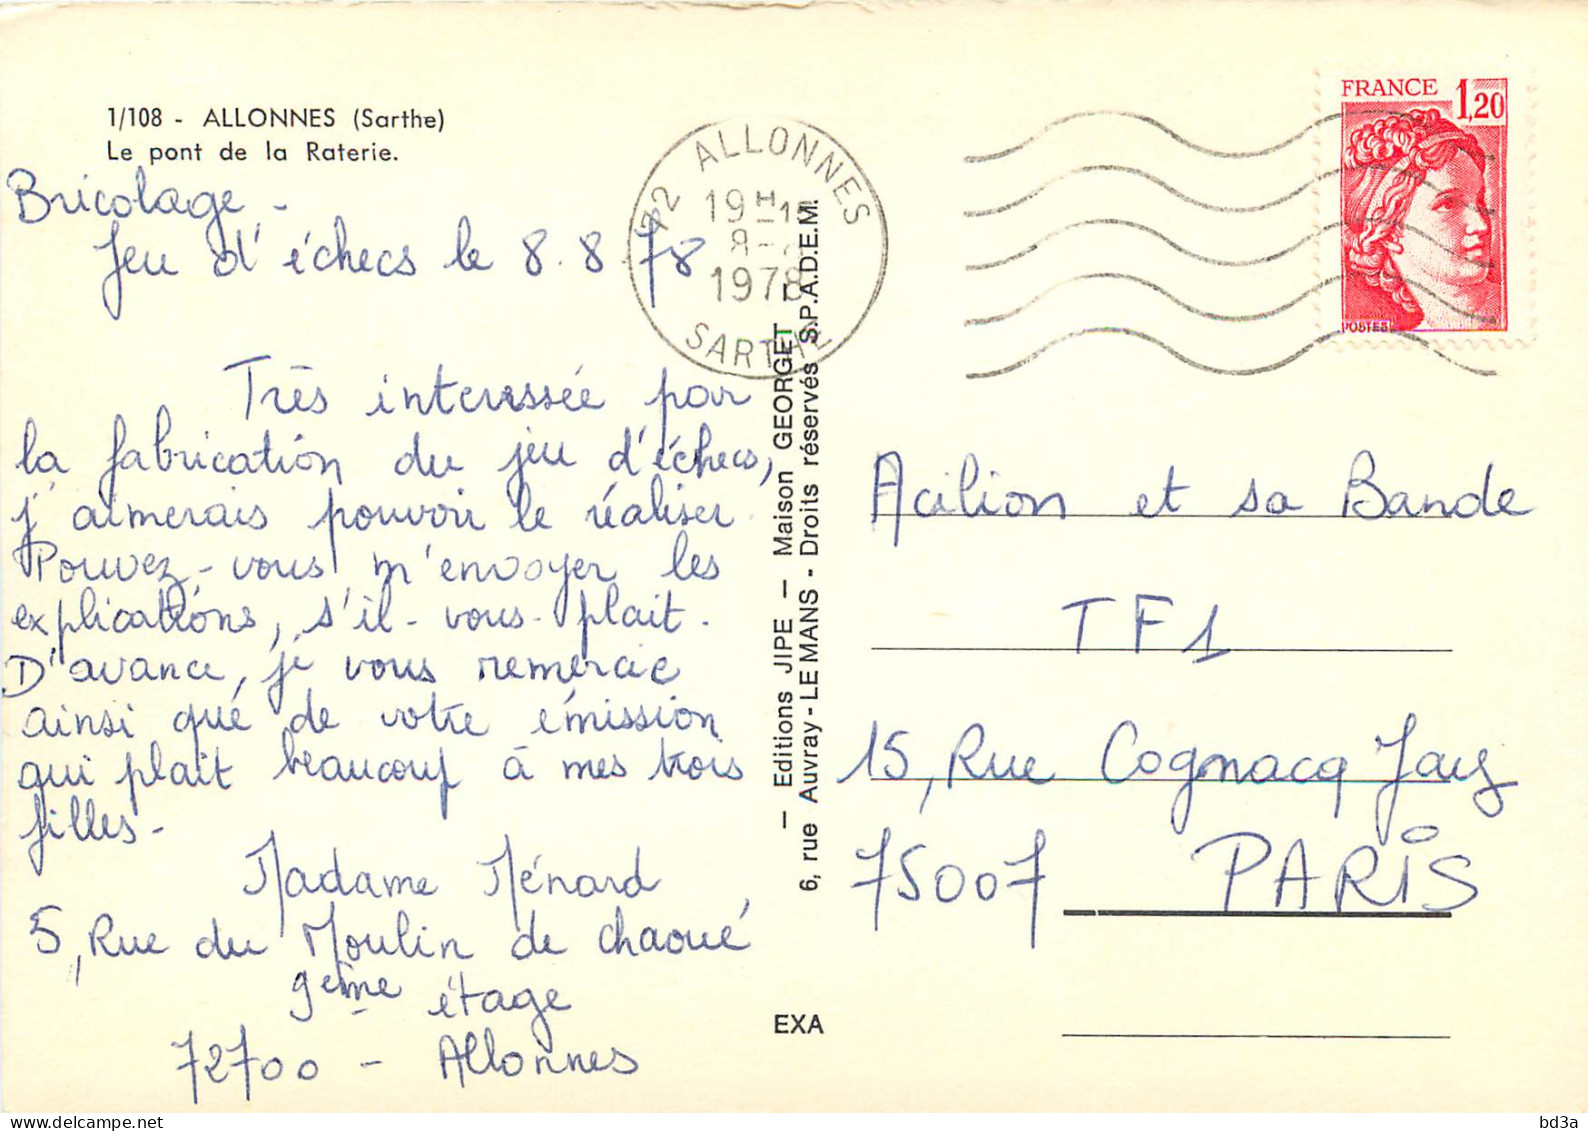 1/108 - ALLONNES (Sarthe)
Le pont de la Raterie.
Bricolage -
Jeu d'échecs le 8.8.78
Très interessée par
la fabrication du jeu d'échecs,
j'aimerais pouvoir le réaliser.
Pouvez-vous m'envoyer les
explications, s'il-vous-plait.
D'avance, je vous remercie
ainsi que de votre émission
qui plait beaucoup à mes trois
filles-
Madame Ménard
5, Rue du Moulin de chaoué
9eme étage
72700 - Allonnes
72 ALLONNES
19H-
8-
1978
SARTHE
— Editions JIPE — Maison GEORGET —
6, rue Auvray - LE MANS - Droits réservés S.P.A.D.E.M.
EXA
FRANCE 1,20
POSTES
Acilion et sa Bande
TF1
15, Rue Cognacq Jay
75007 PARIS
bd3a